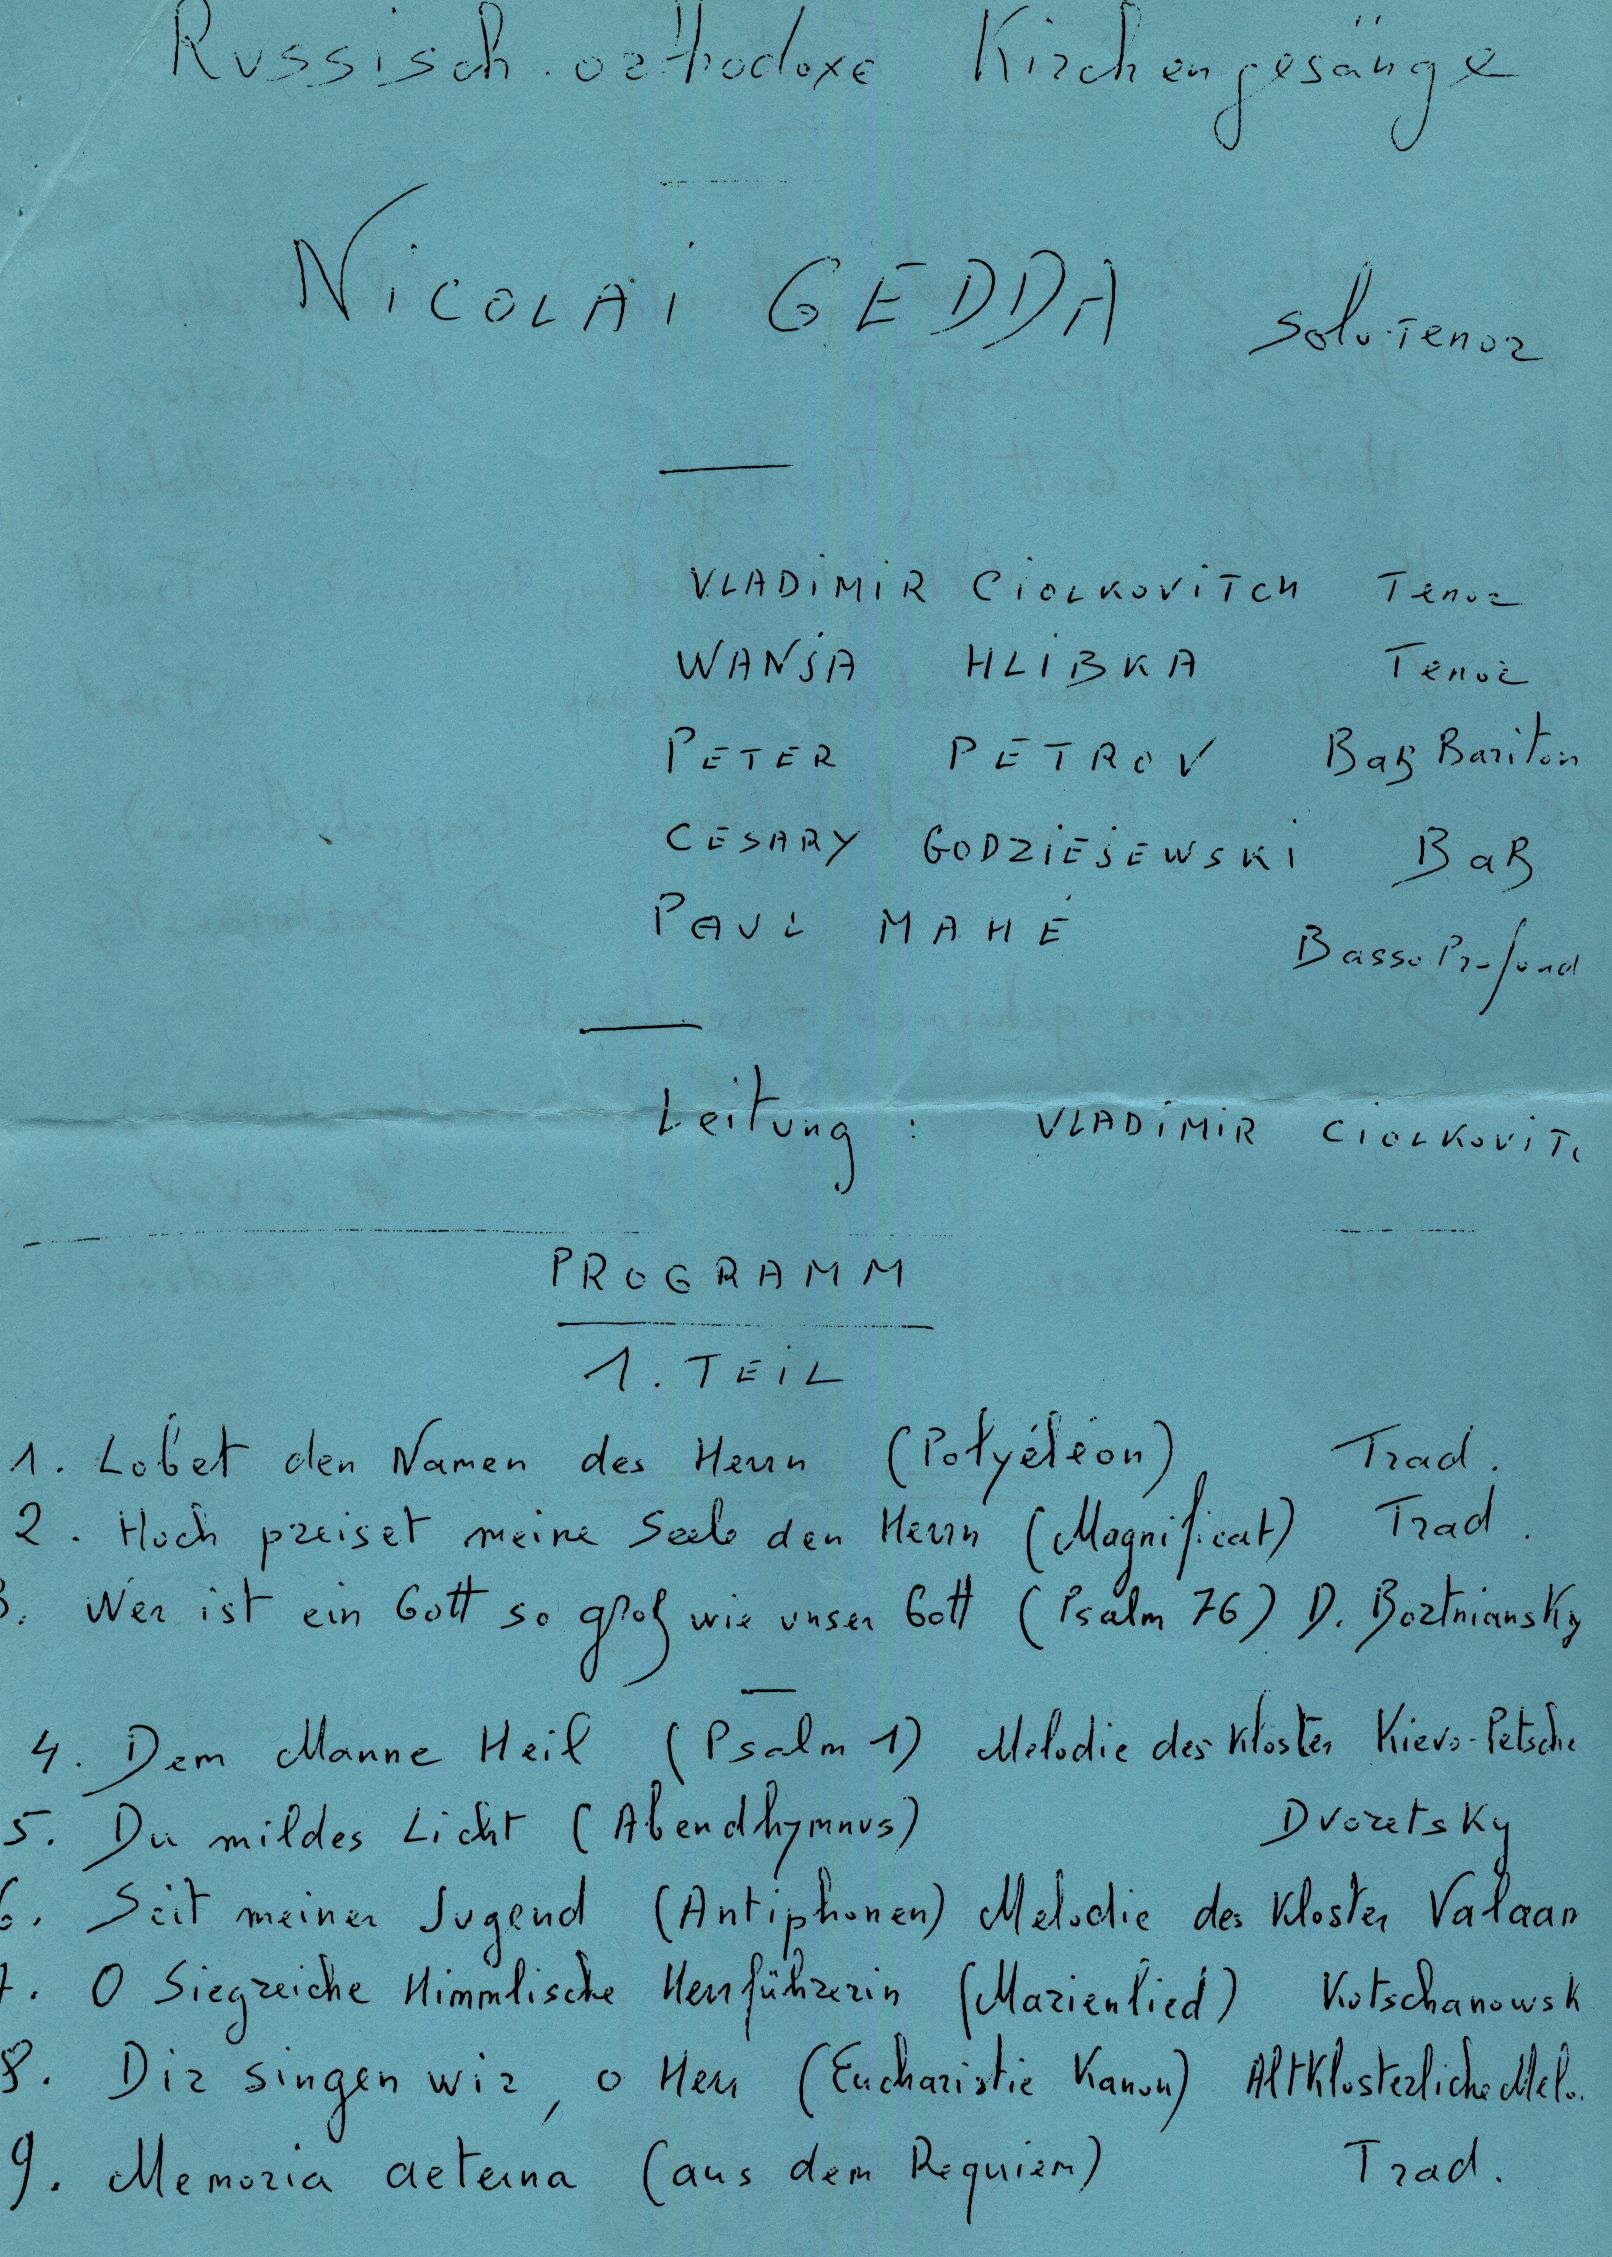 Russisch-orthodoxe Kirchengesänge
NiCOLAi GEDDA Solo-Tenor
VLADiMiR CiOLKOViTCH Tenor
WANJA HLiBKA Tenor
PETER PETROV Baß Bariton
CESARY GODZiEJEWSKi Baß
PAUL MAHÉ
Basso Profond
Leitung : VLADiMiR CiOLKOViTC
PROGRAMM
1. TEiL
1. Lobet den Namen des Herrn (Polyéléon) Trad.
2. Hoch preiset meine Seele den Herrn (Magnificat) Trad.
3. Wer ist ein Gott so groß wie unser Gott (Psalm 76) D. Bortniansky
4. Dem Manne Heil (Psalm 1) Melodie des Kloster Kievo-Petsche
5. Du mildes Licht (Abendhymnus) Dvoretsky
6. Seit meiner Jugend (Antiphonen) Melodie des Kloster Valaan
7. O Siegreiche Himmlische Herrführerin (Marienlied) Kotschanowsk
8. Dir singen wir, o Herr (Eucharistie Kanon) Altklosterliche Melo.
9. Memoria aeterna (aus dem Requiem) Trad.